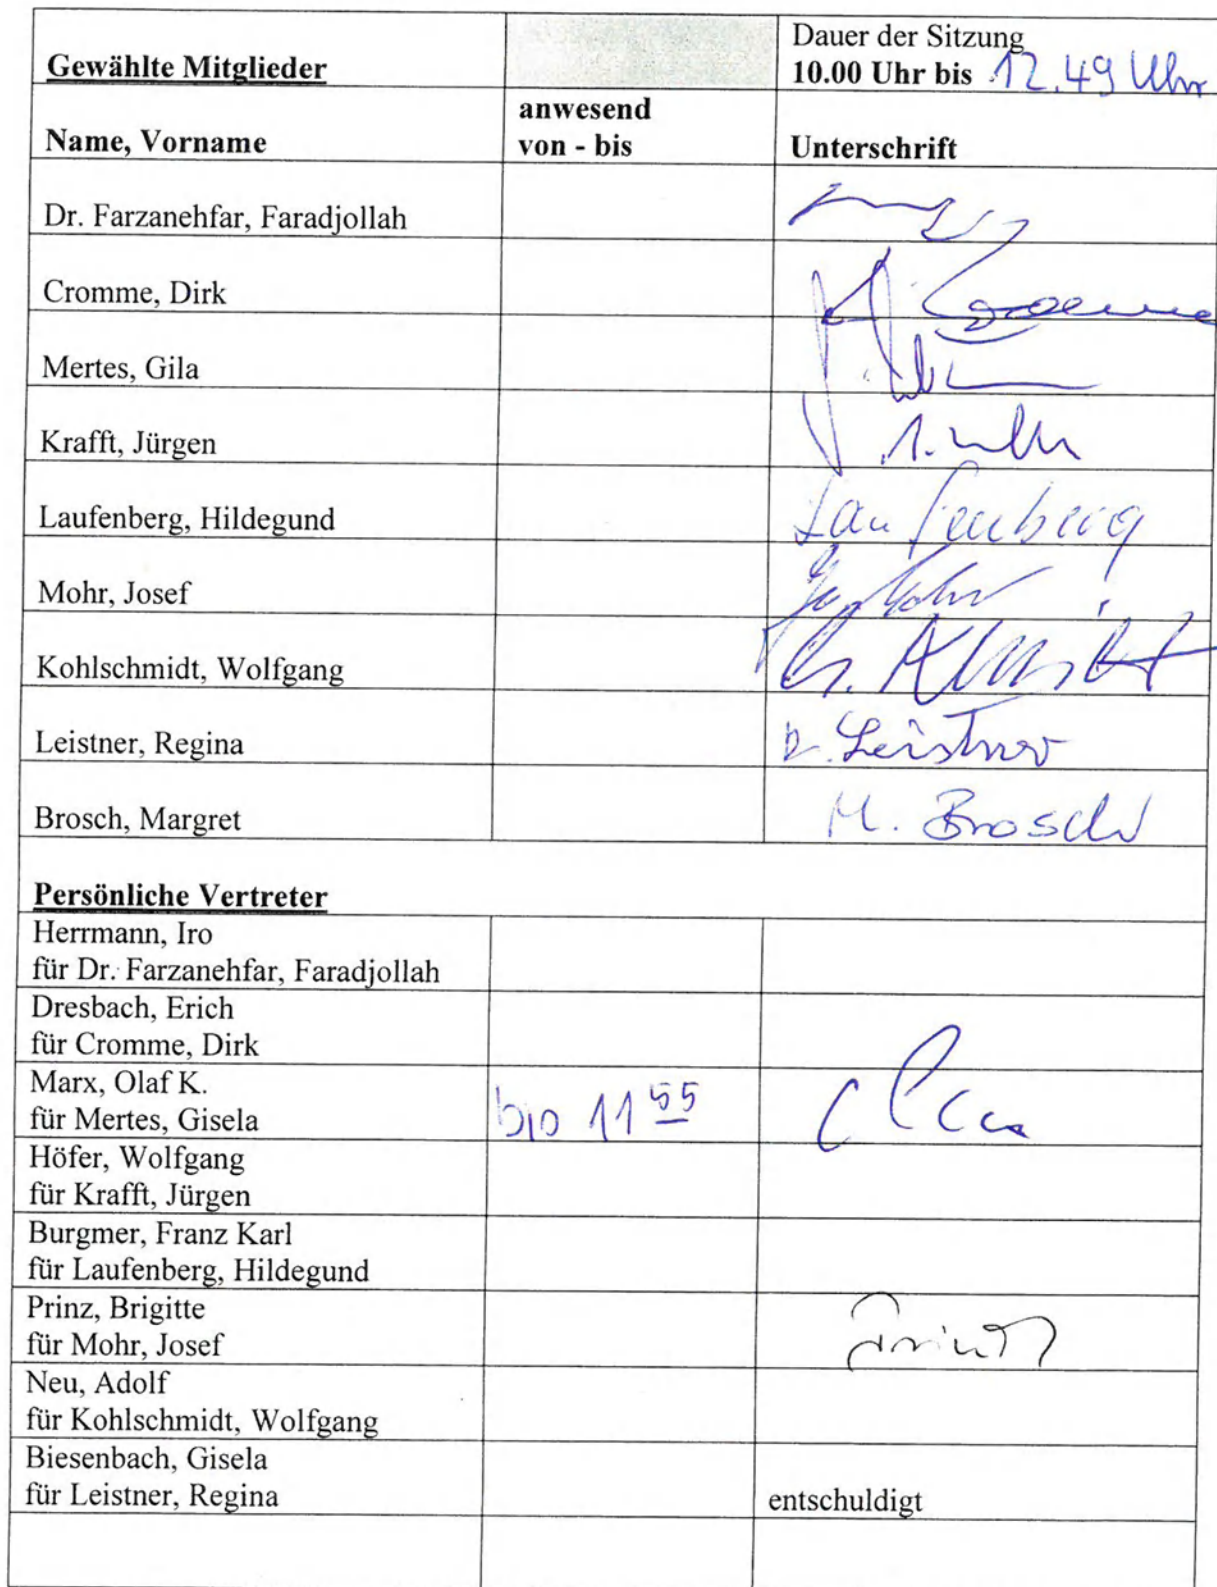 Gewählte Mitglieder
Dauer der Sitzung
10.00 Uhr bis 12.49 Uhr
Name, Vorname
anwesend
von - bis
Unterschrift
Dr. Farzanehfar, Faradjollah
Cromme, Dirk
Mertes, Gila
Krafft, Jürgen
Laufenberg, Hildegund
Laufenberg
Mohr, Josef
Kohlschmidt, Wolfgang
Leistner, Regina
R. Leistner
Brosch, Margret
M. Brosch
Persönliche Vertreter
Herrmann, Iro
für Dr. Farzanehfar, Faradjollah
Dresbach, Erich
für Cromme, Dirk
Marx, Olaf K.
für Mertes, Gisela
bis 11 55
Höfer, Wolfgang
für Krafft, Jürgen
Burgmer, Franz Karl
für Laufenberg, Hildegund
Prinz, Brigitte
für Mohr, Josef
Neu, Adolf
für Kohlschmidt, Wolfgang
Biesenbach, Gisela
für Leistner, Regina
entschuldigt